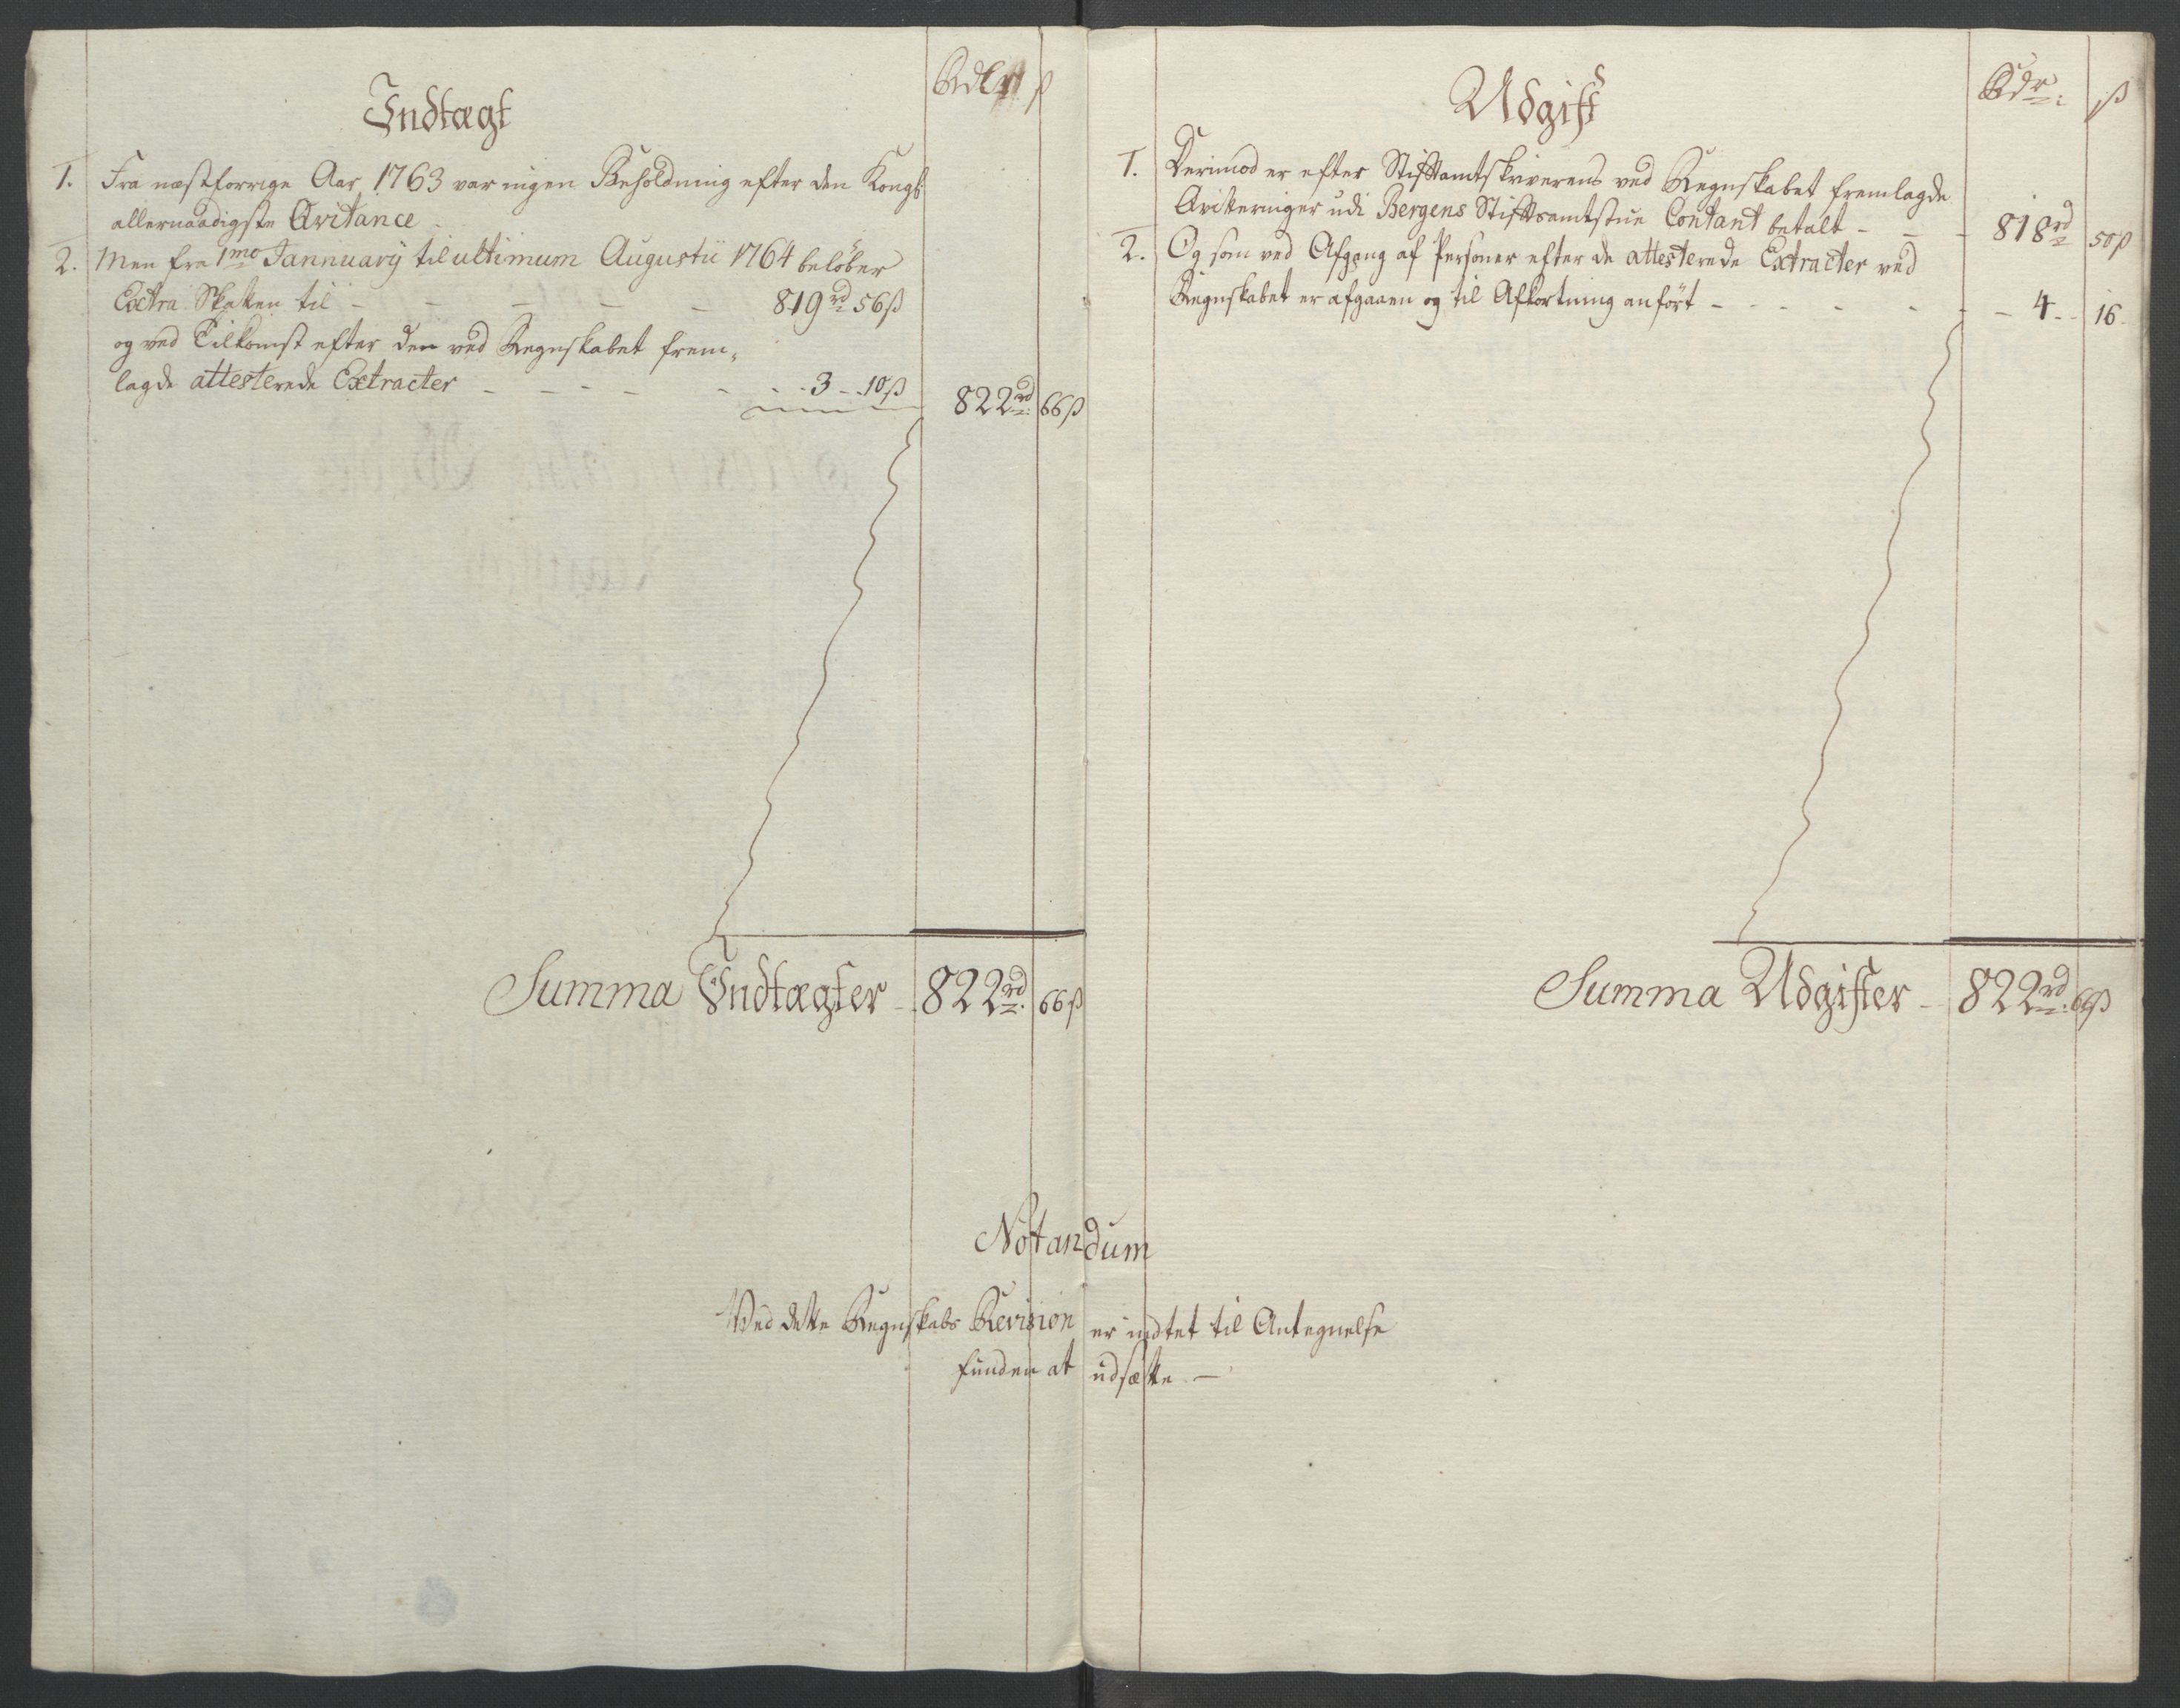 Indtægt
Rdlr ß
1. Fra næstforrige Aar 1763 var ingen Beholdning efter den Kongl:
allernaadigste Qvitance
2. Men fra 1mo Jannuarÿ til ultimum Augustii 1764 beløber
Extra Skatten til - - - - 819rd 56ß
og ved Tilkomst efter den ved Regnskabet frem-
lagde attesterede Extracter - - - - - 3 - 10ß
822rd: 66ß
Summa Indtægter - 822rd. 66ß
Udgift
Rdr: ß
1. Derimod er efter Stiftamtskriverens ved Regnskabet fremlagde
Qvitteringer udi Bergens Stiftsamtstue Contant betalt - - - 818rd 50ß
2. Og som ved Afgang af Personer efter de attesterede Extracter ved
Regnskabet er afgaaen og til Afkortning anført - - - - - 4 - 16
Summa Udgifter - 822rd: 66ß
Notandum
Ved dette Regnskabs Revision er indtet til Antegnelse
funden at udsætte -